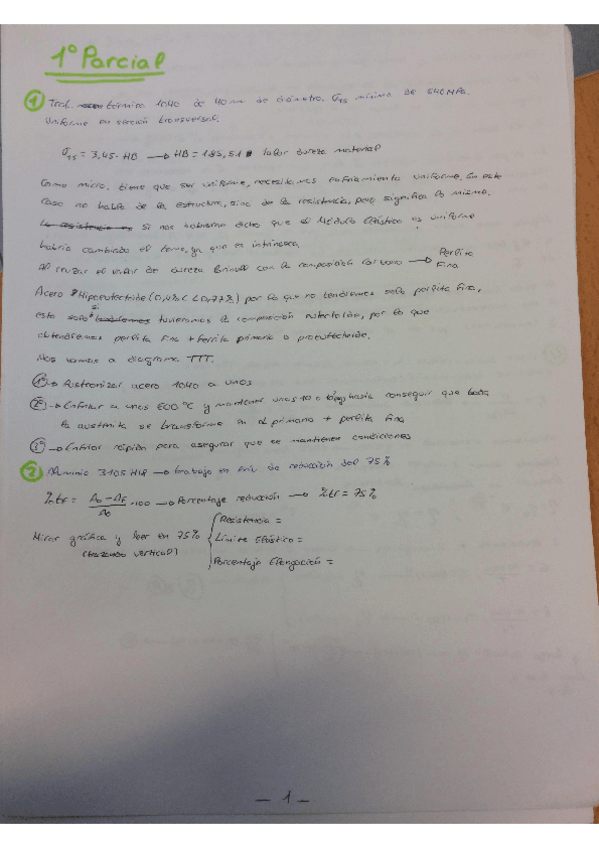 1º Parcial
① Trat. térmico 1040 de 40 mm de diámetro. σTS mínimo de 640 MPa.
Uniforme en sección transversal.
σTS = 3,45 · HB → HB = 185,51 valor dureza material
Como micro. tiene que ser uniforme, necesitamos enfriamiento uniforme. En este
caso no habla de la estructura, sino de la resistencia, pero significa lo mismo.
La resistencia es Si nos hubieran dicho que el Módulo Elástico es uniforme
habría cambiado el tema, ya que es intrínseca
Al cruzar el valor de dureza Brinell con la composición carbono → Perlita
Fina
Acero Hipoeutectoide (0,4% C < 0,77%) por lo que no tendremos solo perlita fina,
esto solo si tuvieramos la composición eutectoide, por lo que
obtendremos perlita fina + ferrita primaria o proeutectoide.
Nos vamos a diagrama TTT.
1º → Austenizar acero 1040 a unos
2º → Enfriar a unos 600 °C y mantener unos 10 s hasta conseguir que toda
la austenita se transforme en α primario + perlita fina
3º → Enfriar rápido para asegurar que se mantienen condiciones
② Aluminio 3105 H18 → trabajo en frío de reducción del 75%
%tf = A0 - AF / A0 · 100 → Porcentaje reducción → %tf = 75%
Mirar gráfica y leer en 75%
(trazando vertical)
Resistencia =
Límite Elástico =
Porcentaje Elongación =
- 1 -